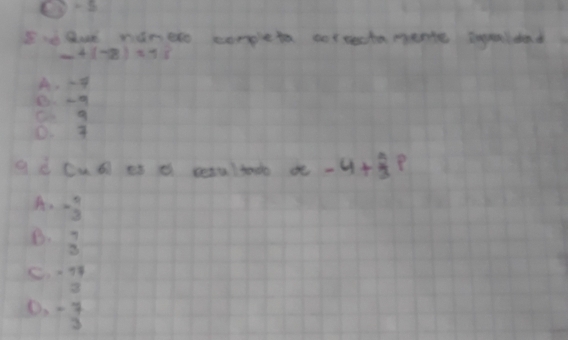 8. ¿Que número completa correctamente igualdad
_+(-8)=1?
A. -7
B. -9
C. 9
D. 7
9 ¿Cuál es el resultado de -4+5/3?
A. -5/3
B. 7/3
C. -17/3
D. -7/3